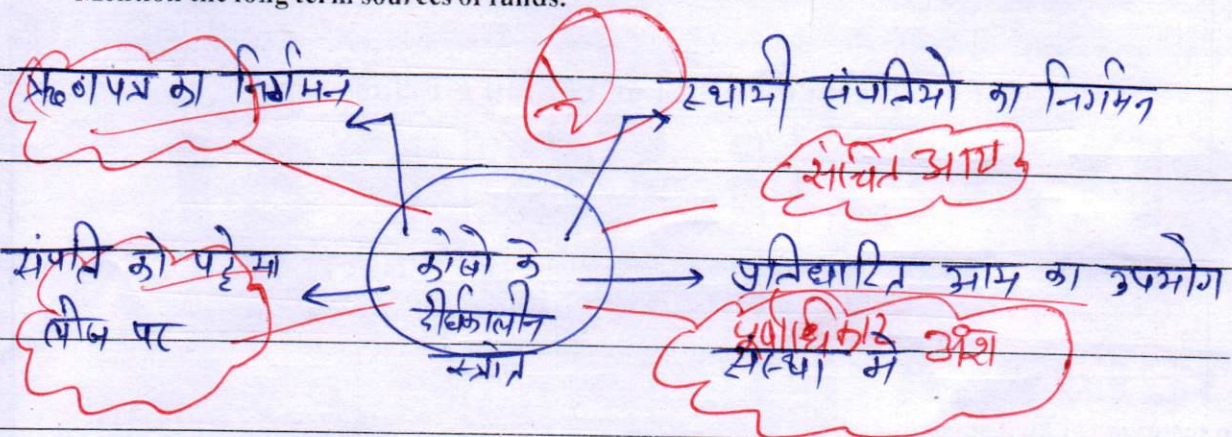 Mention the long term sources of funds.
ऋण पत्र का निर्गमन
2
स्थायी संपतियो का निर्गमन
संचित आय
संपति को पट्टे या
लीज पर
कोषो के
दीर्घकालीन
स्त्रोत
प्रतिधारित आय का उपयोग
पूर्वाधिकार अंश
संस्था मे